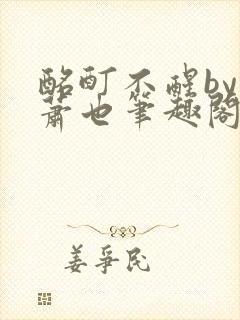 酩酊不醒by
萧也笔趣阁
姜争民